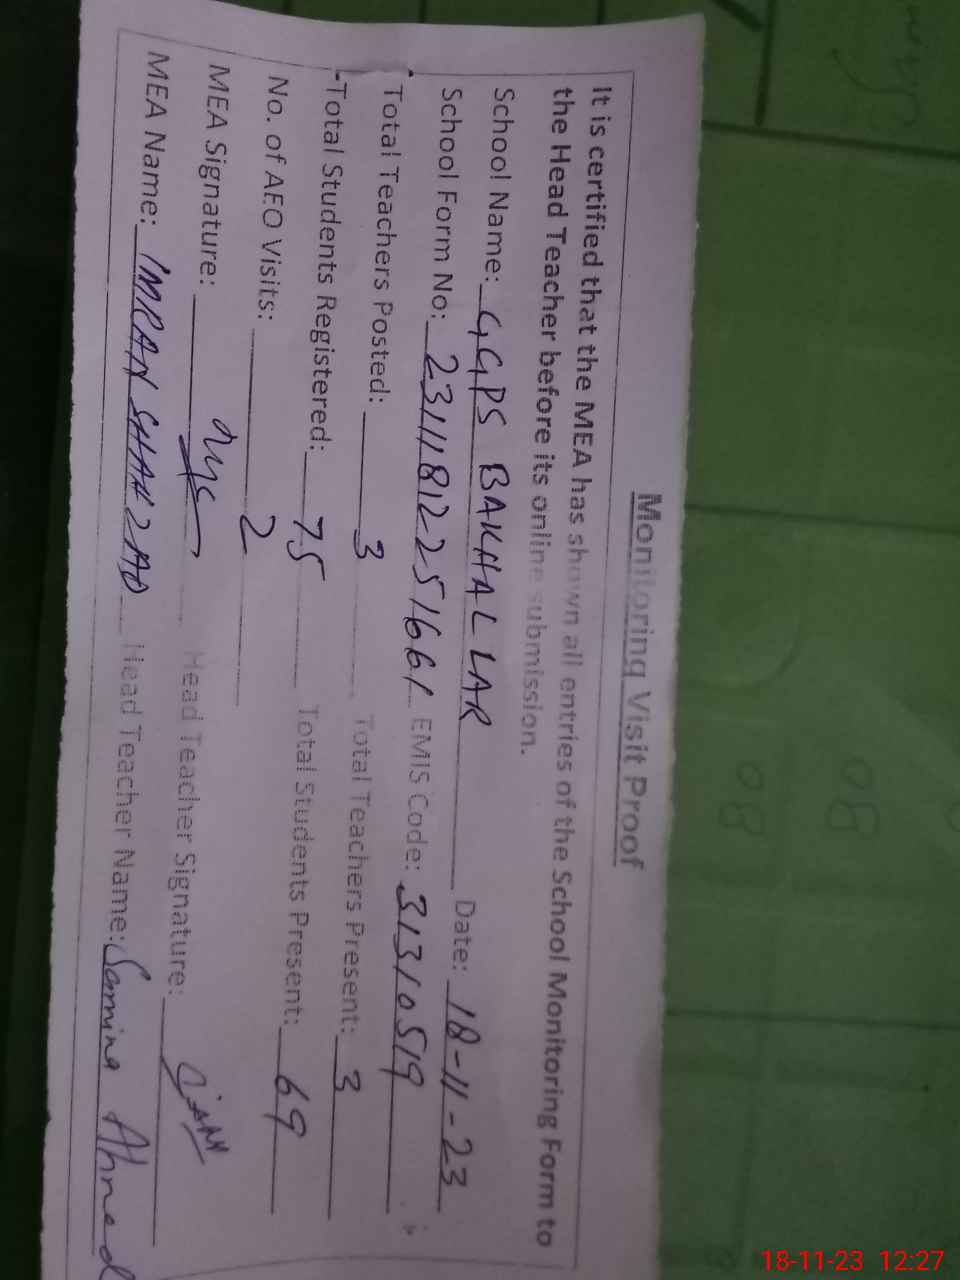 Monitoring Visit Proof
It is certified that the MEA has shown all entries of the School Monitoring Form to
the Head Teacher before its online submission.
School Name: GGPS BAKHAL LAR Date: 18-11-23
School Form No: 23111812251661 EMIS Code: 31310519
Total Teachers Posted: 3 Total Teachers Present: 3
Total Students Registered: 75 Total Students Present: 69
No. of AEO Visits: 2
MEA Signature: Head Teacher Signature:
MEA Name: IMRAN SHAHZAD Head Teacher Name: Samina Ahmed
08
08
18-11-23 12:27